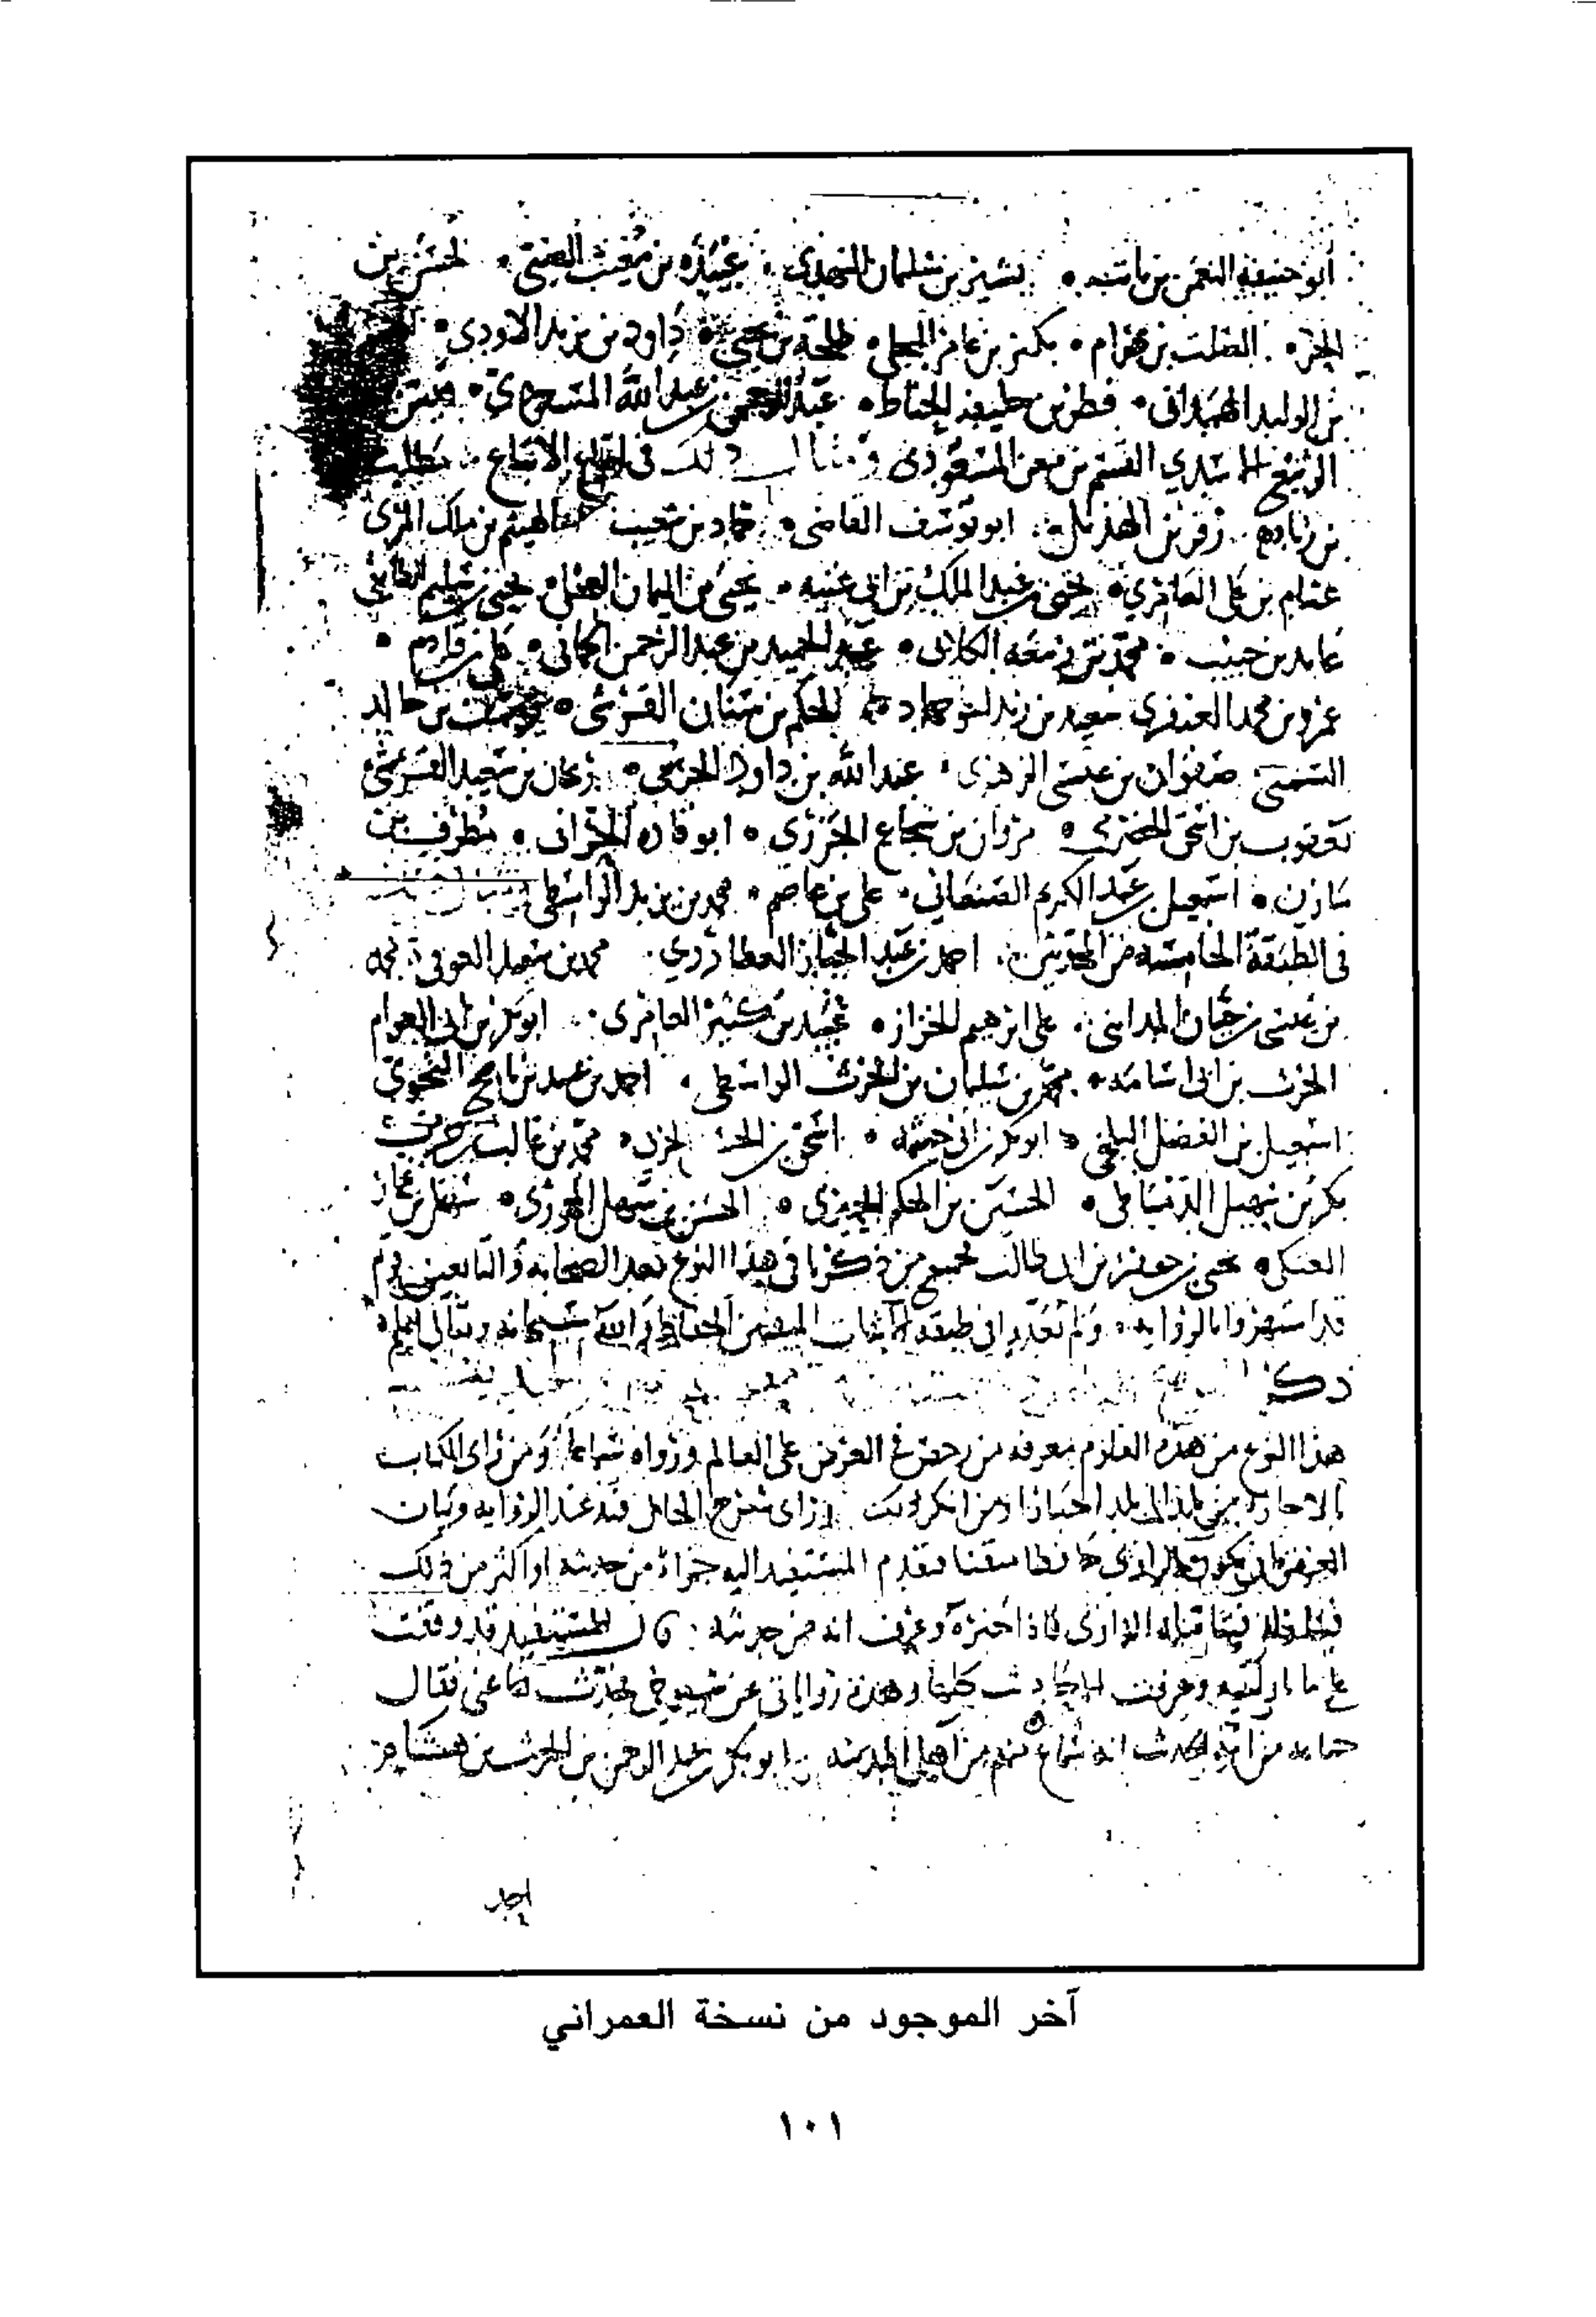 أبو حنيفة النعمن بن ثابت بشير بن سلمان النهدي عبيدة بن معتب الضبي الحسن بن
الحر الصلت بن بهرام بكير بن عامر البجلي طلحة بن يحيى داود بن يزيد الاودي
بن الوليد الهمداني فطر بن خليفة الحناط عبد الرحمن بن عبد الله المسعودي قيس بن
الربيع الاسدي القسم بن معن المسعودي ومثال ذلك في اتباع الاتباع مطلب
بن زياد زفر بن الهذيل ابو يوسف القاضي حماد بن شعيب الهيثم بن
عثام بن علي العامري يحيى بن عبد الملك بن ابي غنية يحيى بن اليمان العجلي يحيى بن سليم الطائفي
عايد بن حبيب محمد بن ربيعة الكلابي عبد الحميد بن عبد الرحمن الحماني علي بن قادم
عمرو بن محمد العنقزي سعيد بن زيد اخو حماد الحكم بن سنان القرشي يوسف بن خالد
السمتي صفوان بن عيسى الزهري عبد الله بن داود الخريبي ريحان بن سعيد القرشي
يعقوب بن اسحق الحضرمي مروان بن شجاع الجزري ابو قتادة الحراني مطرف بن
مازن اسمعيل بن عبد الكريم الصنعاني علي بن عاصم محمد بن يزيد الواسطي
في الطبقة الخامسة من المحدثين احمد بن عبد الجبار العطاردي محمد بن سعد العوفي محمد
بن عيسى بن حيان المدايني علي بن ابرهيم الخزاز عبيد بن كثير العامري ابو بكر بن ابي العوام
الحرث بن ابي اسامة محمد بن سليمان بن الحرث الواسطي احمد بن عبيد بن ناصح النحوي
اسمعيل بن الفضل البلخي ابو بكر بن ابي خيثمة اسحق بن الحسن الحربي محمد بن غالب بن حرب
بكر بن سهل الدمياطي الحسين بن الحكم الحبري الحسن بن سهل المجوز سهل بن عمار
العتكي يحيى بن جعفر بن ابي طالب فجميع من ذكرنا في هذا النوع بعد الصحابة والتابعين قوم
قد اشتهروا بالرواية ولم يعدوا في طبقة الاثبات المتقنين الحفاظ والله سبحانه وتعالى اعلم
ذكر
هذا النوع من هذه العلوم معرفة من رخص في العرض على العالم ورواه سماعا ومن راى الكتاب
بالاجازة من بلد الى بلد اخبارا ومن انكر ذلك وراى شرح الحال فيه عند الرواية وبيان
العرض ان يكون الراوي حافظا متقنا فيقدم المستفيد اليه جزاء من حديثه او اكثر من ذلك
فيتامله الراوي فاذا اخبره وعرف انه من حديثه قال للمستفيد قد وقفت
على ما ناولتنيه وعرفت الاحاديث كلها وهذه رواياتي عن شيوخي فحدث بها عني فقال
جماعة من ائمة الحديث انه سماع منهم من اهل المدينة ابو بكر بن عبد الرحمن بن الحرث بن هشام
احد
آخر الموجود من نسخة العمراني
١٠١